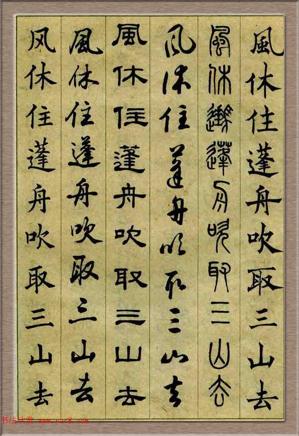 風休住蓬舟吹取三山去
風休住蓬舟吹取三山去
风休住蓬舟吹取三山去
風休住蓬舟吹取三山去
風休住蓬舟吹取三山去
风休住蓬舟吹取三山去